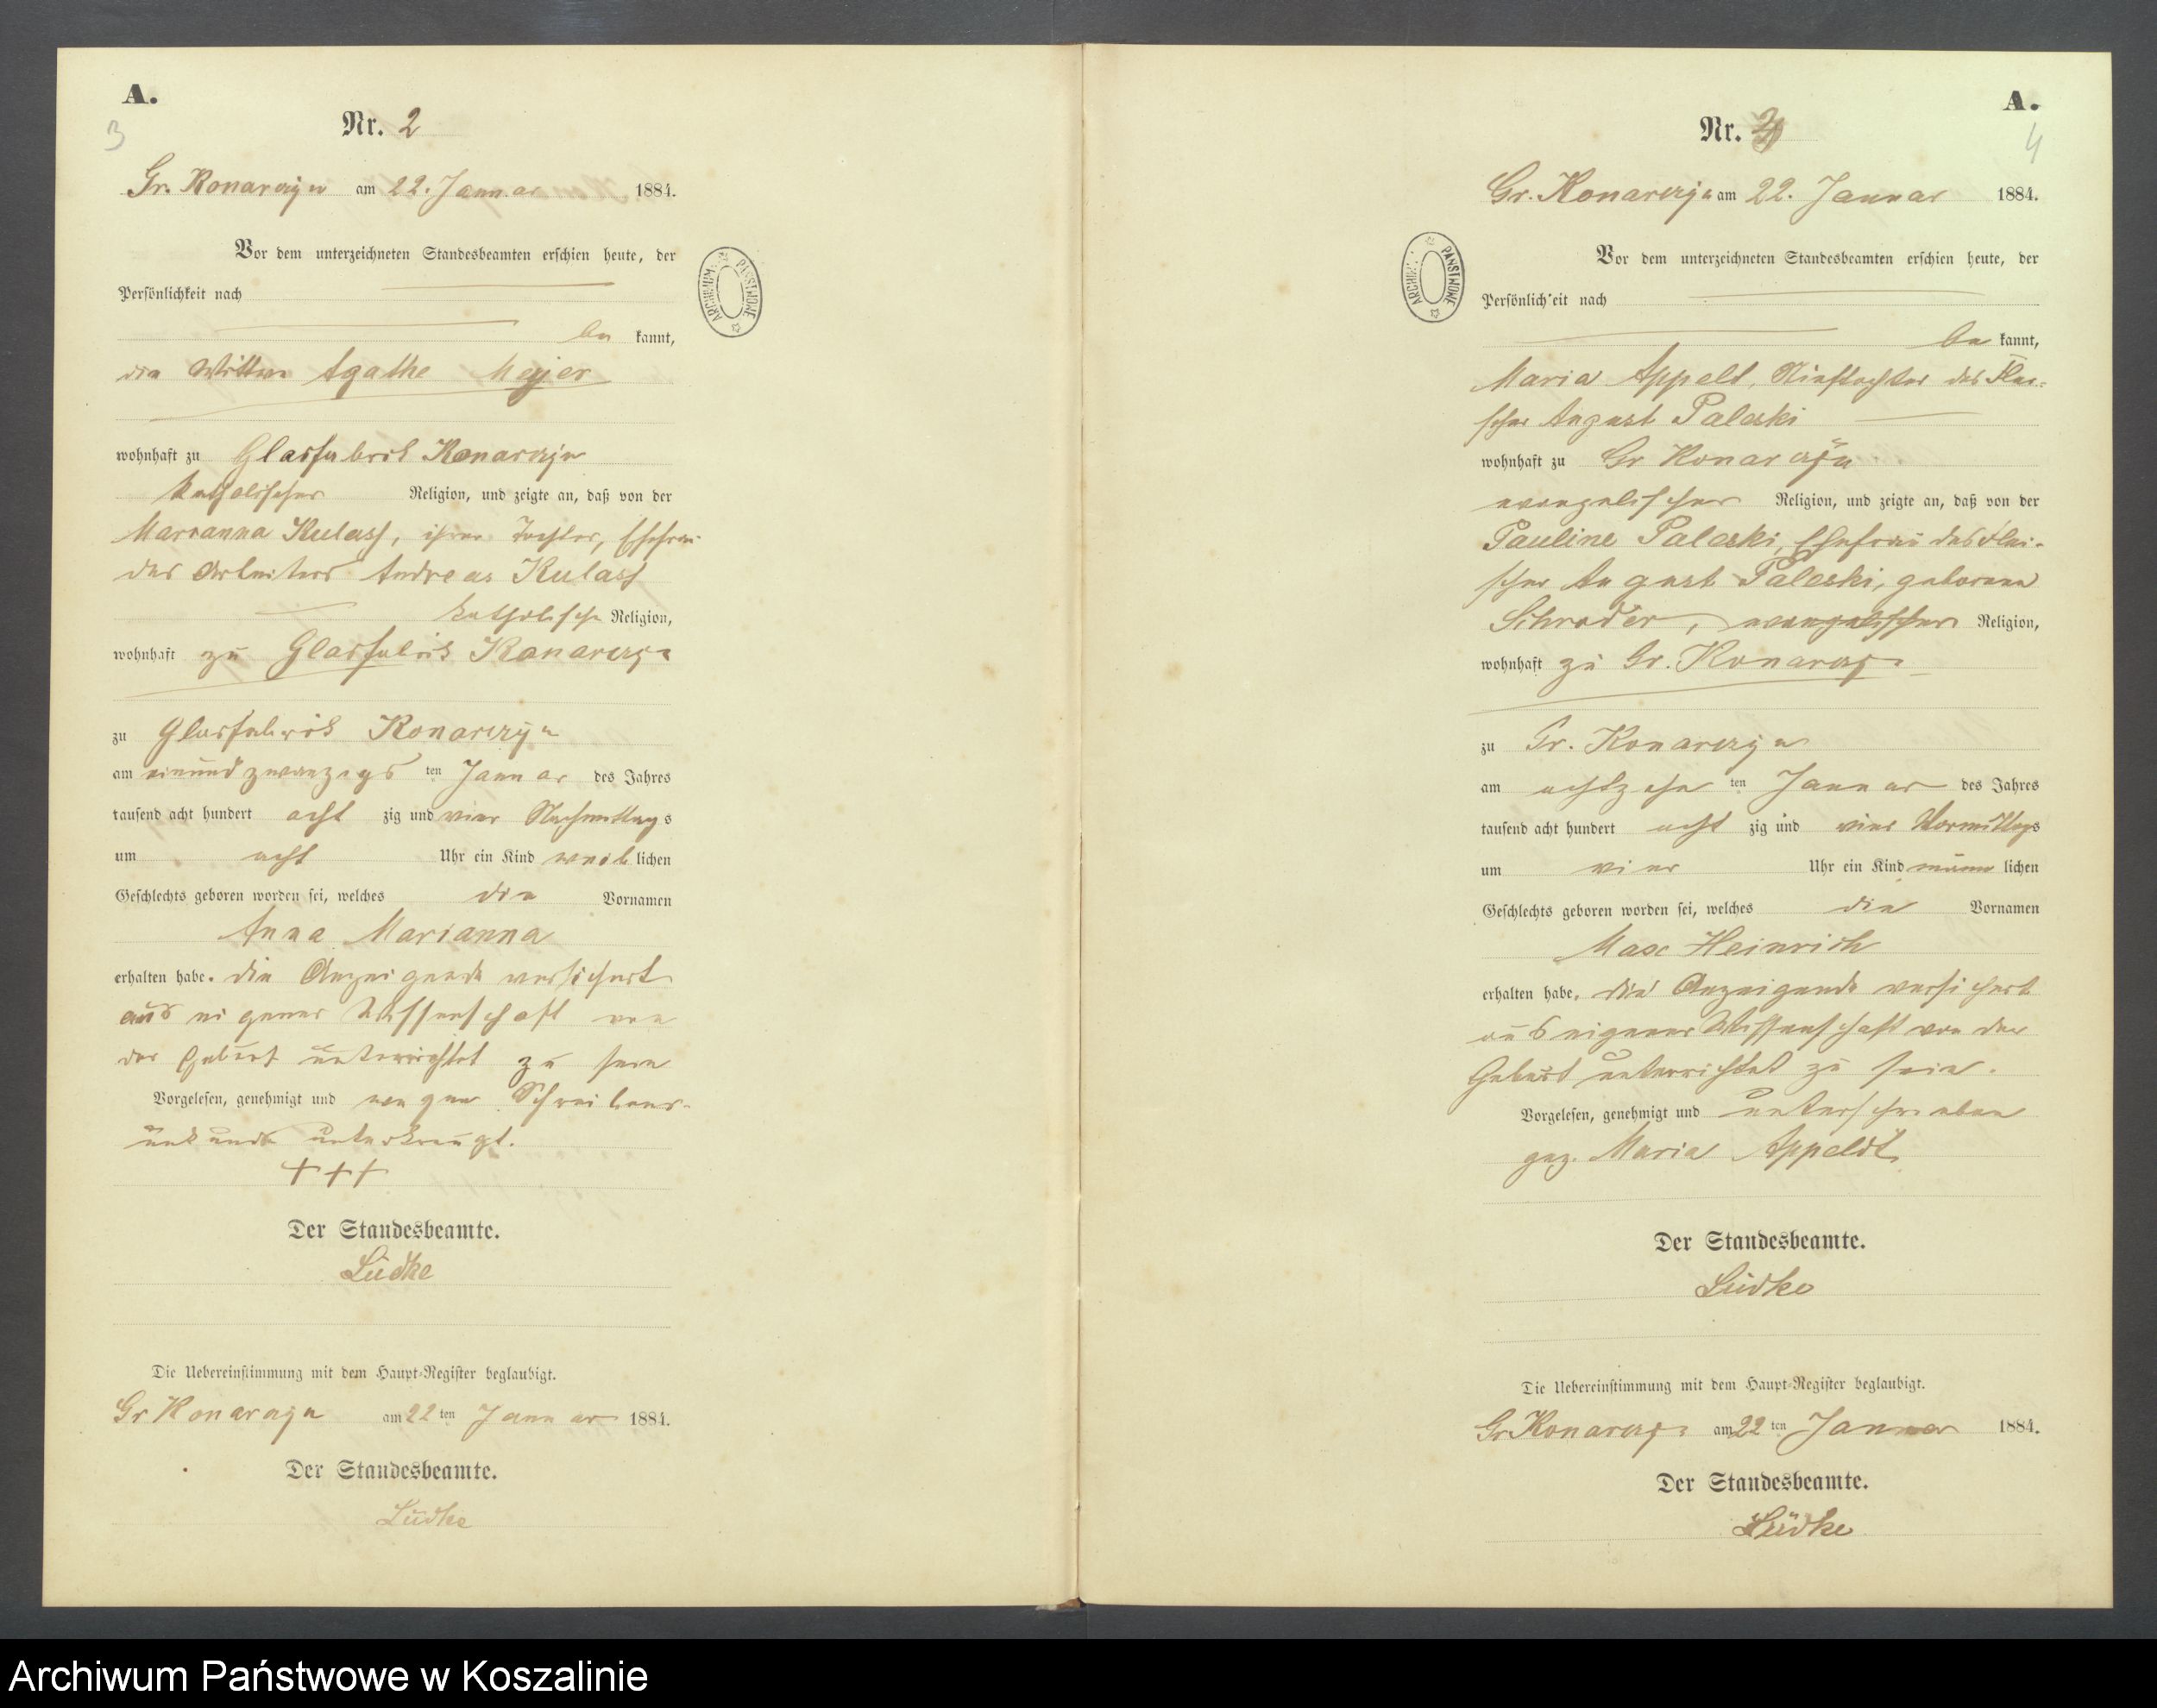 A.
3
Nr. 2
Gr. Konarczyn am 22. Januar 1884.
Vor dem unterzeichneten Standesbeamten erschien heute, der
Persönlichkeit nach
be kannt,
die Wittwe Agathe Meyer
wohnhaft zu Glasfabrik Konarczyn
katholischer Religion, und zeigte an, daß von der
Marianna Kulass, ihrer Tochter, Ehefrau
des Arbeiters Andreas Kulass
katholischer Religion,
wohnhaft zu Glasfabrik Konarczyn
zu Glasfabrik Konarczyn
am einundzwanzigs ten Januar des Jahres
tausend acht hundert acht zig und vier Nachmittags
um acht Uhr ein Kind weib lichen
Geschlechts geboren worden sei, welches die Vornamen
Anna Marianna
erhalten habe. die Anzeigende versichert
aus eigener Wissenschaft von
der Geburt unterrichtet zu sein
Vorgelesen, genehmigt und wegen Schreibens-
unkunde unterkreuzt.
+++
Der Standesbeamte.
Lüdke
Die Uebereinstimmung mit dem Haupt-Register beglaubigt.
Gr Konarczyn am 22 ten Januar 1884.
Der Standesbeamte.
Lüdke
ARCHIWUM PAŃSTWOWE
A.
4
Nr. 3
Gr. Konarczyn am 22. Januar 1884.
Vor dem unterzeichneten Standesbeamten erschien heute, der
Persönlichkeit nach
be kannt,
Maria Appelt, Stieftochter des Flei-
scher August Paleski
wohnhaft zu Gr Konarczyn
evangelischer Religion, und zeigte an, daß von der
Pauline Paleski, Ehefrau des Flei-
scher August Paleski, geborene
Schroder, evangelischer Religion,
wohnhaft zu Gr. Konarczyn
zu Gr. Konarczyn
am achtzehn ten Januar des Jahres
tausend acht hundert acht zig und vier Vormittags
um vier Uhr ein Kind männ lichen
Geschlechts geboren worden sei, welches die Vornamen
Max Heinrich
erhalten habe. die Anzeigende versichert
aus eigener Wissenschaft von der
Geburt unterrichtet zu sein.
Vorgelesen, genehmigt und unterschrieben
gez. Maria Appeldt
Der Standesbeamte.
Lüdke
Die Uebereinstimmung mit dem Haupt-Register beglaubigt.
Gr Konarczyn am 22 ten Januar 1884.
Der Standesbeamte.
Lüdke
ARCHIWUM PAŃSTWOWE
Archiwum Państwowe w Koszalinie